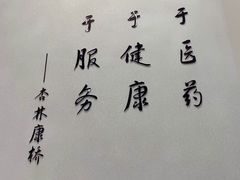 于医药
乎健康
乎服务
——杏林康桥